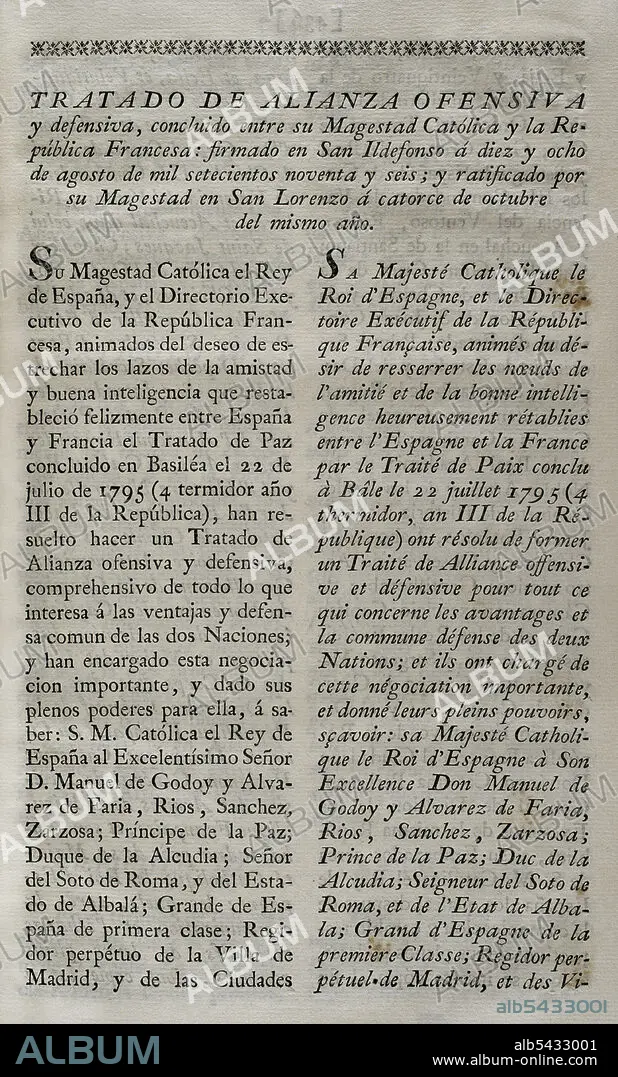 TRATADO DE ALIANZA OFENSIVA
y defensiva, concluido entre su Magestad Católica y la Re-
pública Francesa: firmado en San Ildefonso á diez y ocho
de agosto de mil setecientos noventa y seis; y ratificado por
su Magestad en San Lorenzo á catorce de octubre
del mismo año.
Su Magestad Católica el Rey
de España, y el Directorio Exe-
cutivo de la República Fran-
cesa, animados del deseo de es-
trechar los lazos de la amistad
y buena inteligencia que resta-
bleció felizmente entre España
y Francia el Tratado de Paz
concluido en Basiléa el 22 de
julio de 1795 (4 termidor año
III de la República), han re-
suelto hacer un Tratado de
Alianza ofensiva y defensiva,
comprehensivo de todo lo que
interesa á las ventajas y defen-
sa comun de las dos Naciones;
y han encargado esta negocia-
cion importante, y dado sus
plenos poderes para ella, á sa-
ber: S. M. Católica el Rey de
España al Excelentísimo Señor
D. Manuel de Godoy y Alva-
rez de Faria, Rios, Sanchez,
Zarzosa; Príncipe de la Paz;
Duque de la Alcudia; Señor
del Soto de Roma, y del Esta-
do de Albalá; Grande de Es-
paña de primera clase; Regi-
dor perpétuo de la Villa de
Madrid, y de las Ciudades
SA Majesté Catholique le
Roi d'Espagne, et le Direc-
toire Exécutif de la Républi-
que Française, animés du dé-
sir de resserrer les nœuds de
l'amitié et de la bonne intelli-
gence heureusement rétablies
entre l'Espagne et la France
par le Traité de Paix conclu
à Bâle le 22 juillet 1795 (4
thermidor, an III de la Ré-
publique) ont résolu de former
un Traité de Alliance offensi-
ve et défensive pour tout ce
qui concerne les avantages et
la commune défense des deux
Nations; et ils ont chargé de
cette négociation importante,
et donné leurs pleins pouvoirs,
sçavoir: sa Majesté Catholi-
que le Roi d'Espagne à Son
Excellence Don Manuel de
Godoy y Alvarez de Faria,
Rios, Sanchez, Zarzosa;
Prince de la Paz; Duc de la
Alcudia; Seigneur del Soto de
Roma, et de l'Etat de Alba-
la; Grand d'Espagne de la
premiere Classe; Regidor per-
pétuel de Madrid, et des Vi-
alb5433001
ALBUM
alb5433001
www.album-online.com